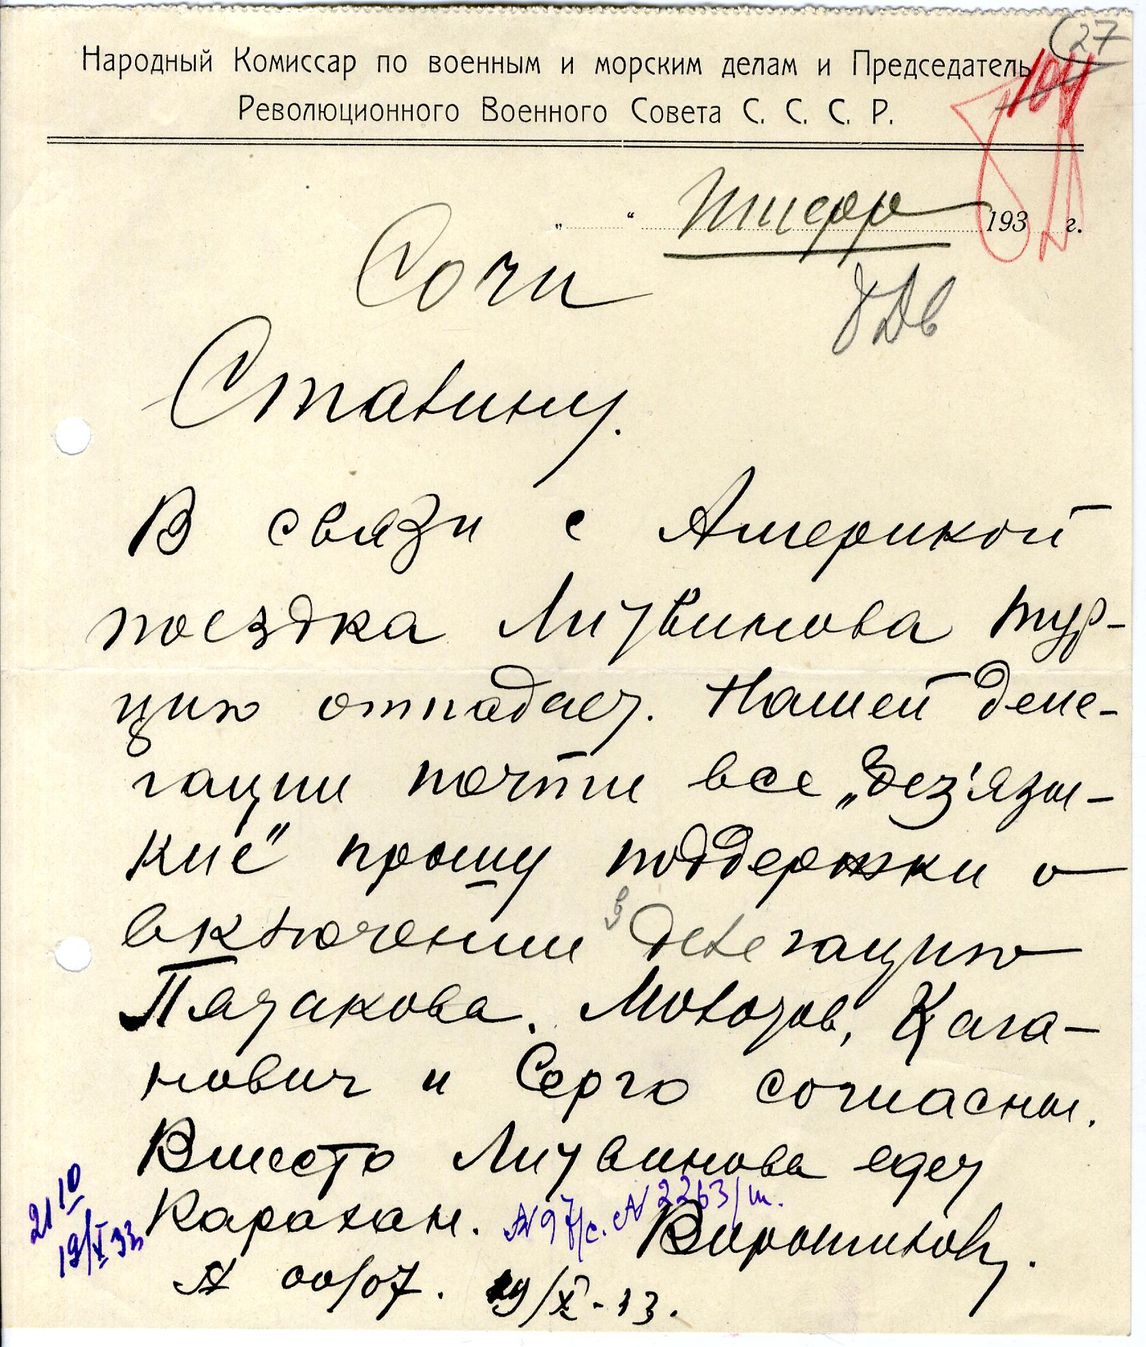 27
104
Народный Комиссар по военным и морским делам и Председатель
Революционного Военного Совета С. С. С. Р.
„ “ Шифр 193 г.
Сочи
Сталину.
В связи с Америкой
поездка Литвинова Тур-
цию отпадает. Нашей деле-
гации почти все „без'язы-
кие“ прошу поддержки о
включении в делегацию
Пятакова. Молотов, Кага-
нович и Серго согласны.
Вместо Литвинова едет
Карахан. Ворошилов.
N 97/с. N 2263/ш.
21 10
19/X 33
N 00/07. 19/X-33.